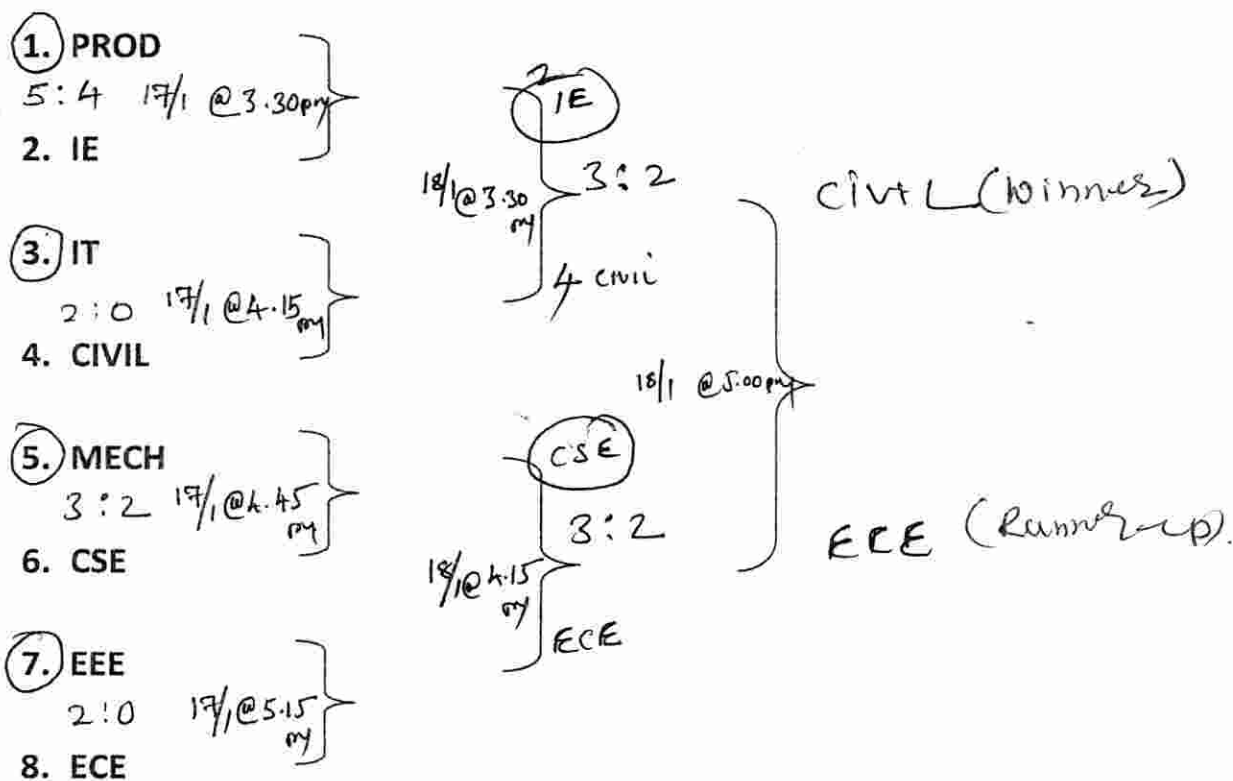 1. PROD
5:4 17/1 @ 3.30pm
2. IE
3. IT
2:0 17/1 @ 4.15 pm
4. CIVIL
5. MECH
3:2 17/1 @ 4.45 pm
6. CSE
7. EEE
2:0 17/1 @ 5.15 pm
8. ECE
2
IE
18/1 @ 3.30 pm
3:2
4 CIVIL
CSE
3:2
18/1 @ 4.15 pm
ECE
18/1 @ 5.00pm
CIVIL (Winner)
ECE (Runner-up).